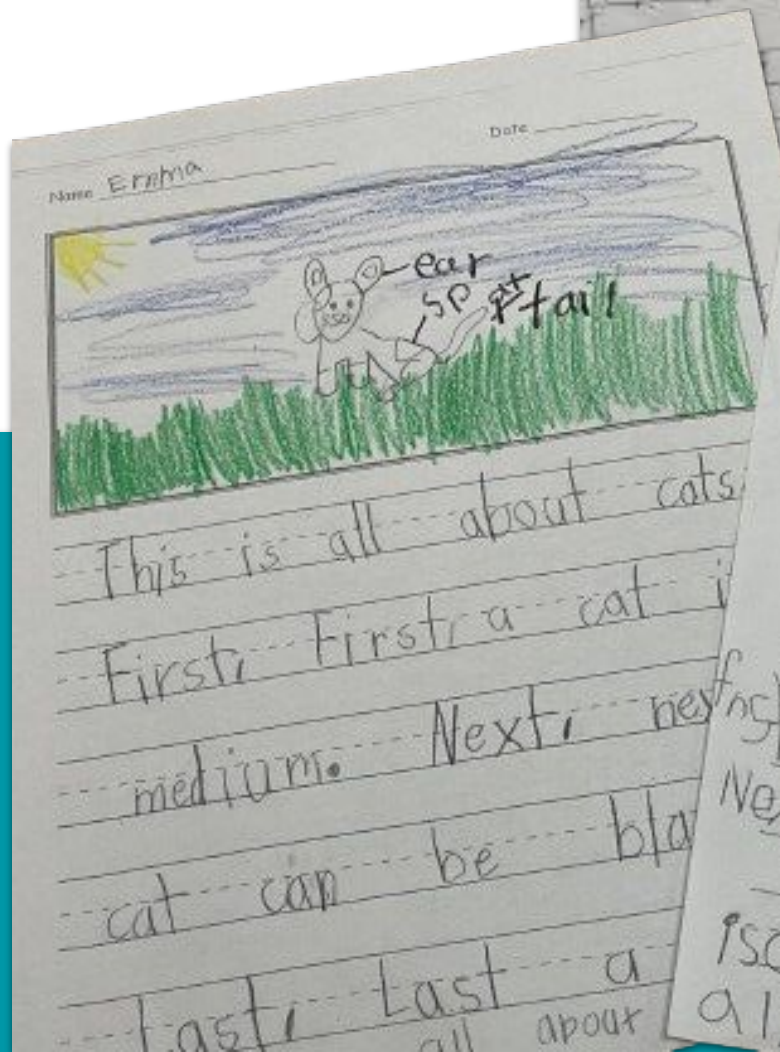 Date
Name Emma
ear
sp
tail
This is all about cats
First, First, a cat i
medium. Next, nex
cat can be bla
Last, Last a
all about
Ne
isc
al